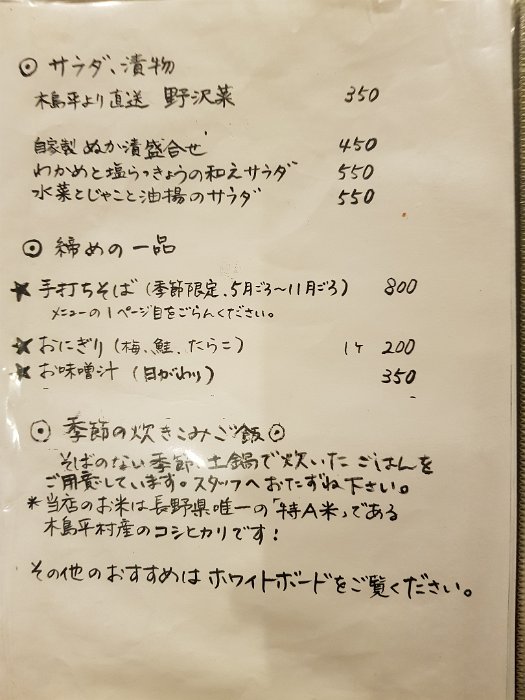 ◉ サラダ、漬物
木島平より直送 野沢菜 350
自家製 ぬか漬盛合せ 450
わかめと塩らっきょうの和えサラダ 550
水菜とじゃこと油揚のサラダ 550
◉ 締めの一品
★ 手打ちそば (季節限定、5月ごろ〜11月ごろ) 800
メニューの1ページ目をごらんください。
★ おにぎり (梅、鮭、たらこ) 1ケ 200
★ お味噌汁 (日がわり) 350
◉ 季節の炊きこみご飯 ◉
そばのない季節、土鍋で炊いた ごはんを
ご用意しています。スタッフへおたずね下さい。
*当店のお米は長野県唯一の「特A米」である
木島平村産のコシヒカリです!
その他のおすすめは ホワイトボードをご覧ください。